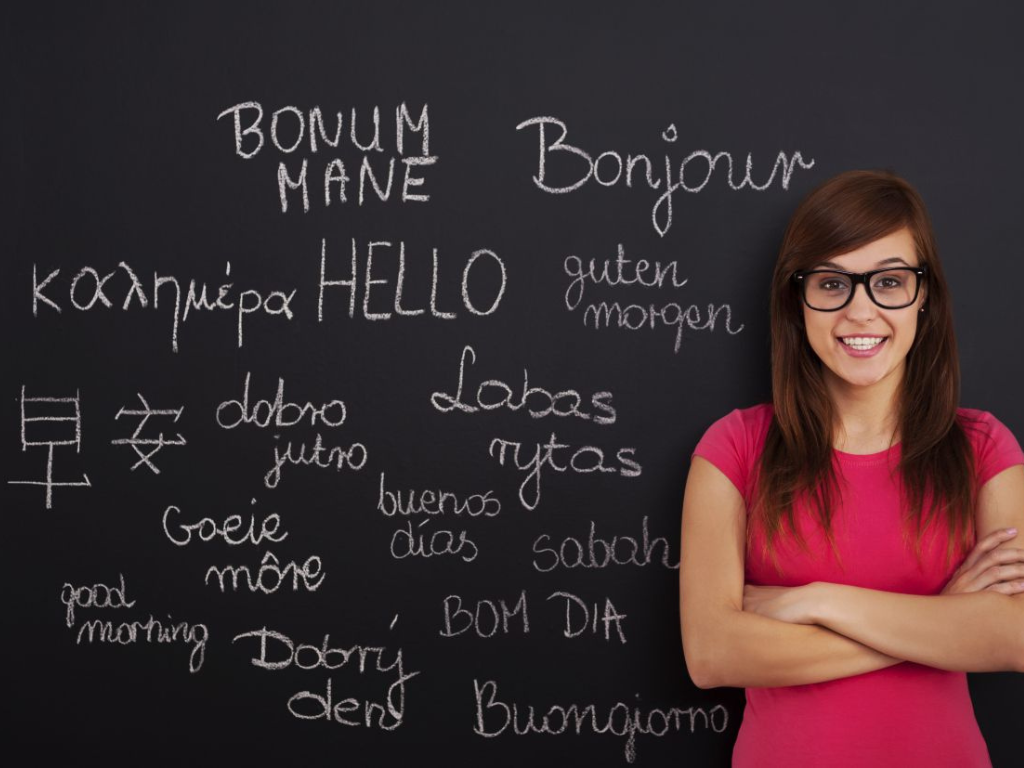 BONUM
MANE
Bonjour
καλημέρα
HELLO
guten
morgen
早安
dobro
jutro
Labas
rytas
buenos
días
Goeie
môre
sabah
good
morning
BOM DIA
Dobrý
den
Buongiorno